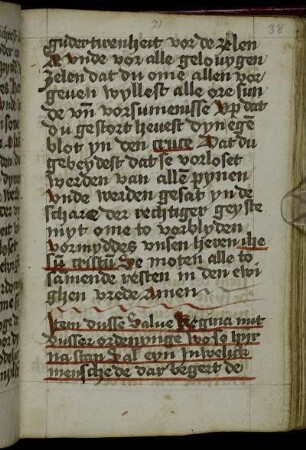 21
38
guder twenheit vor de zelen
N vnde vor alle gelouygen
zelen dat du ome allen vor
geuen wyllest alle ore sun
de vn̄ vorsumenisse vp dat
du gestort heuest dyn egē
blot yn den cruce Dat du
gebeydest dat se vorloset
werden van allē pynen
vnde werden gesat yn de
schare der rechtiger geyste
myt ome to vorblyden
vormyddes vnsen heren ihe
sū cristū Se moten alle to
samende resten in den ewi
ghen vrede Amen
Item dusse Salue Regina mit
dusser ordeninge wo so hyr
na stap Sal eyn Juwelick
mensche de dar begert de